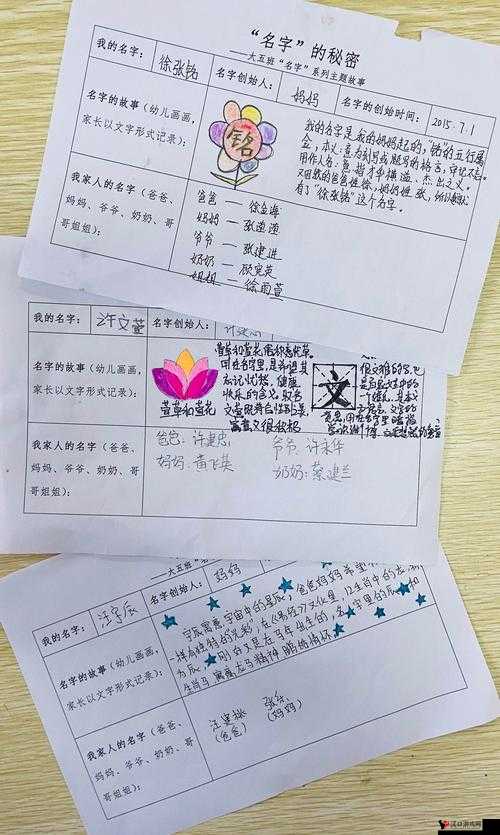 “名字”的秘密
——大五班“名字”系列主题故事
我的名字：
徐张铭
名字创始人：
妈妈
名字的创始时间：
2015.7.1
名字的故事（幼儿画画，
家长以文字形式记录）：
铭
我的名字是我的妈妈起的，“铭”的五行属
金，本义：意为刻写或题写的格言，牢记不忘。
用作人名意指才华横溢、杰出之义。
又因我的爸爸姓徐，妈妈姓张，
了“徐张铭”这个名字。
我家人的名字（爸爸、
妈妈、爷爷、奶奶、哥
哥姐姐）：
爸爸 —
妈妈 —
爷爷 — 张建进
奶奶 —
姐姐 — 徐雨萱
我的名字：
许文萱
名字创始人：
名字的故事（幼儿画画，
家长以文字形式记录）：
萱草和萱花
萱草和萱花俗称忘忧草，
用在名字里，是希望其
忘记忧愁，健康
快乐的含义，取名
寓意很积极
文
我家人的名字（爸爸、
妈妈、爷爷、奶奶、哥
哥姐姐）：
爸爸：许建忠
爷爷：许永华
妈妈：黄飞英
奶奶：蔡建兰
——大五班“名字”
我的名字：
汪宇辰
名字创始人：
妈妈
名字的故事（幼儿画画，
家长以文字形式记录）：
宇辰寓意宇宙中的星辰，爸爸妈妈希望
一样有独特的光彩，在《易经》文化里，12生肖中的龙
为辰，刚好又是在马年出生的，名字里的辰和
生肖马，寓意龙马精神
我家人的名字（爸爸、
妈妈、爷爷、奶奶、哥
哥姐姐）：
（爸爸）
（妈妈）
汉口游戏网